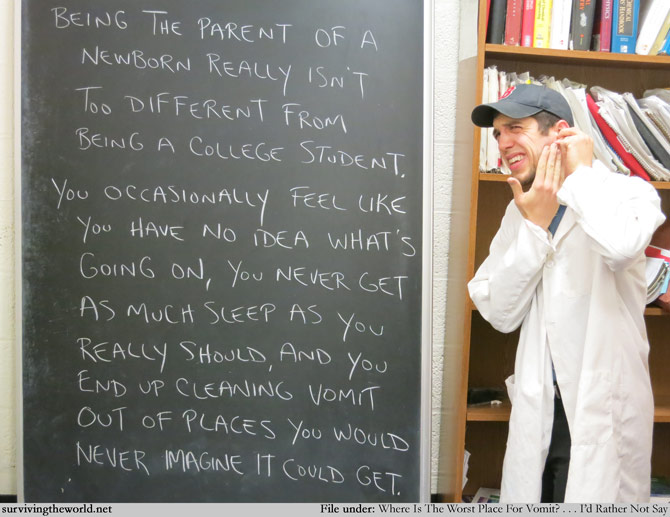 BEING THE PARENT OF A
NEWBORN REALLY ISN'T
TOO DIFFERENT FROM
BEING A COLLEGE STUDENT.
YOU OCCASIONALLY FEEL LIKE
YOU HAVE NO IDEA WHAT'S
GOING ON, YOU NEVER GET
AS MUCH SLEEP AS YOU
REALLY SHOULD, AND YOU
END UP CLEANING VOMIT
OUT OF PLACES YOU WOULD
NEVER IMAGINE IT COULD GET.
survivingtheworld.net
File under: Where Is The Worst Place For Vomit? . . . I'd Rather Not Say